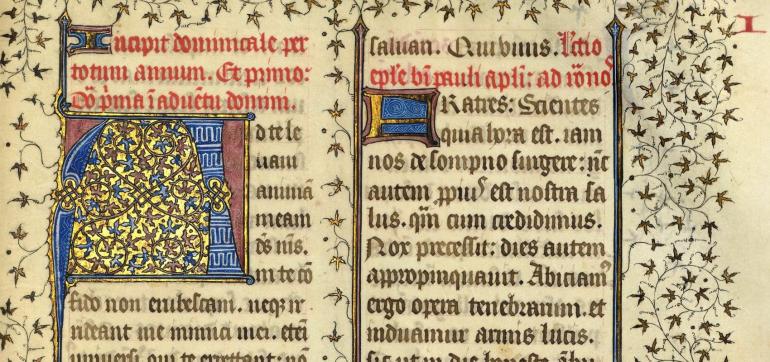 Incipit dominicale per
totum annum. Et primo:
Dõ p̃ma ĩ aduẽtu domini.
Ad te le
uaui
animã
meam
ds̃ ms̃.
in te cõ
fido non erubescam. neqꝫ ir
rideant me inimici mei. etẽi
uniuersi qui te expectant: nõ
saluan. Quibinus. Lectio
eple bĩ pauli apli: ad rõnoꝰ
FRatres: Scientes
quia hora est. iam
nos de sompno surgere: ñc
autem ꝓpiꝰ est nostra sa
lus. qm̃ cum credidimus.
Nox precessit: dies autem
appropinquauit. Abiciamꝰ
ergo opera tenebrarum. et
induamur armis lucis.
sic ut in die honeste ãbu
I